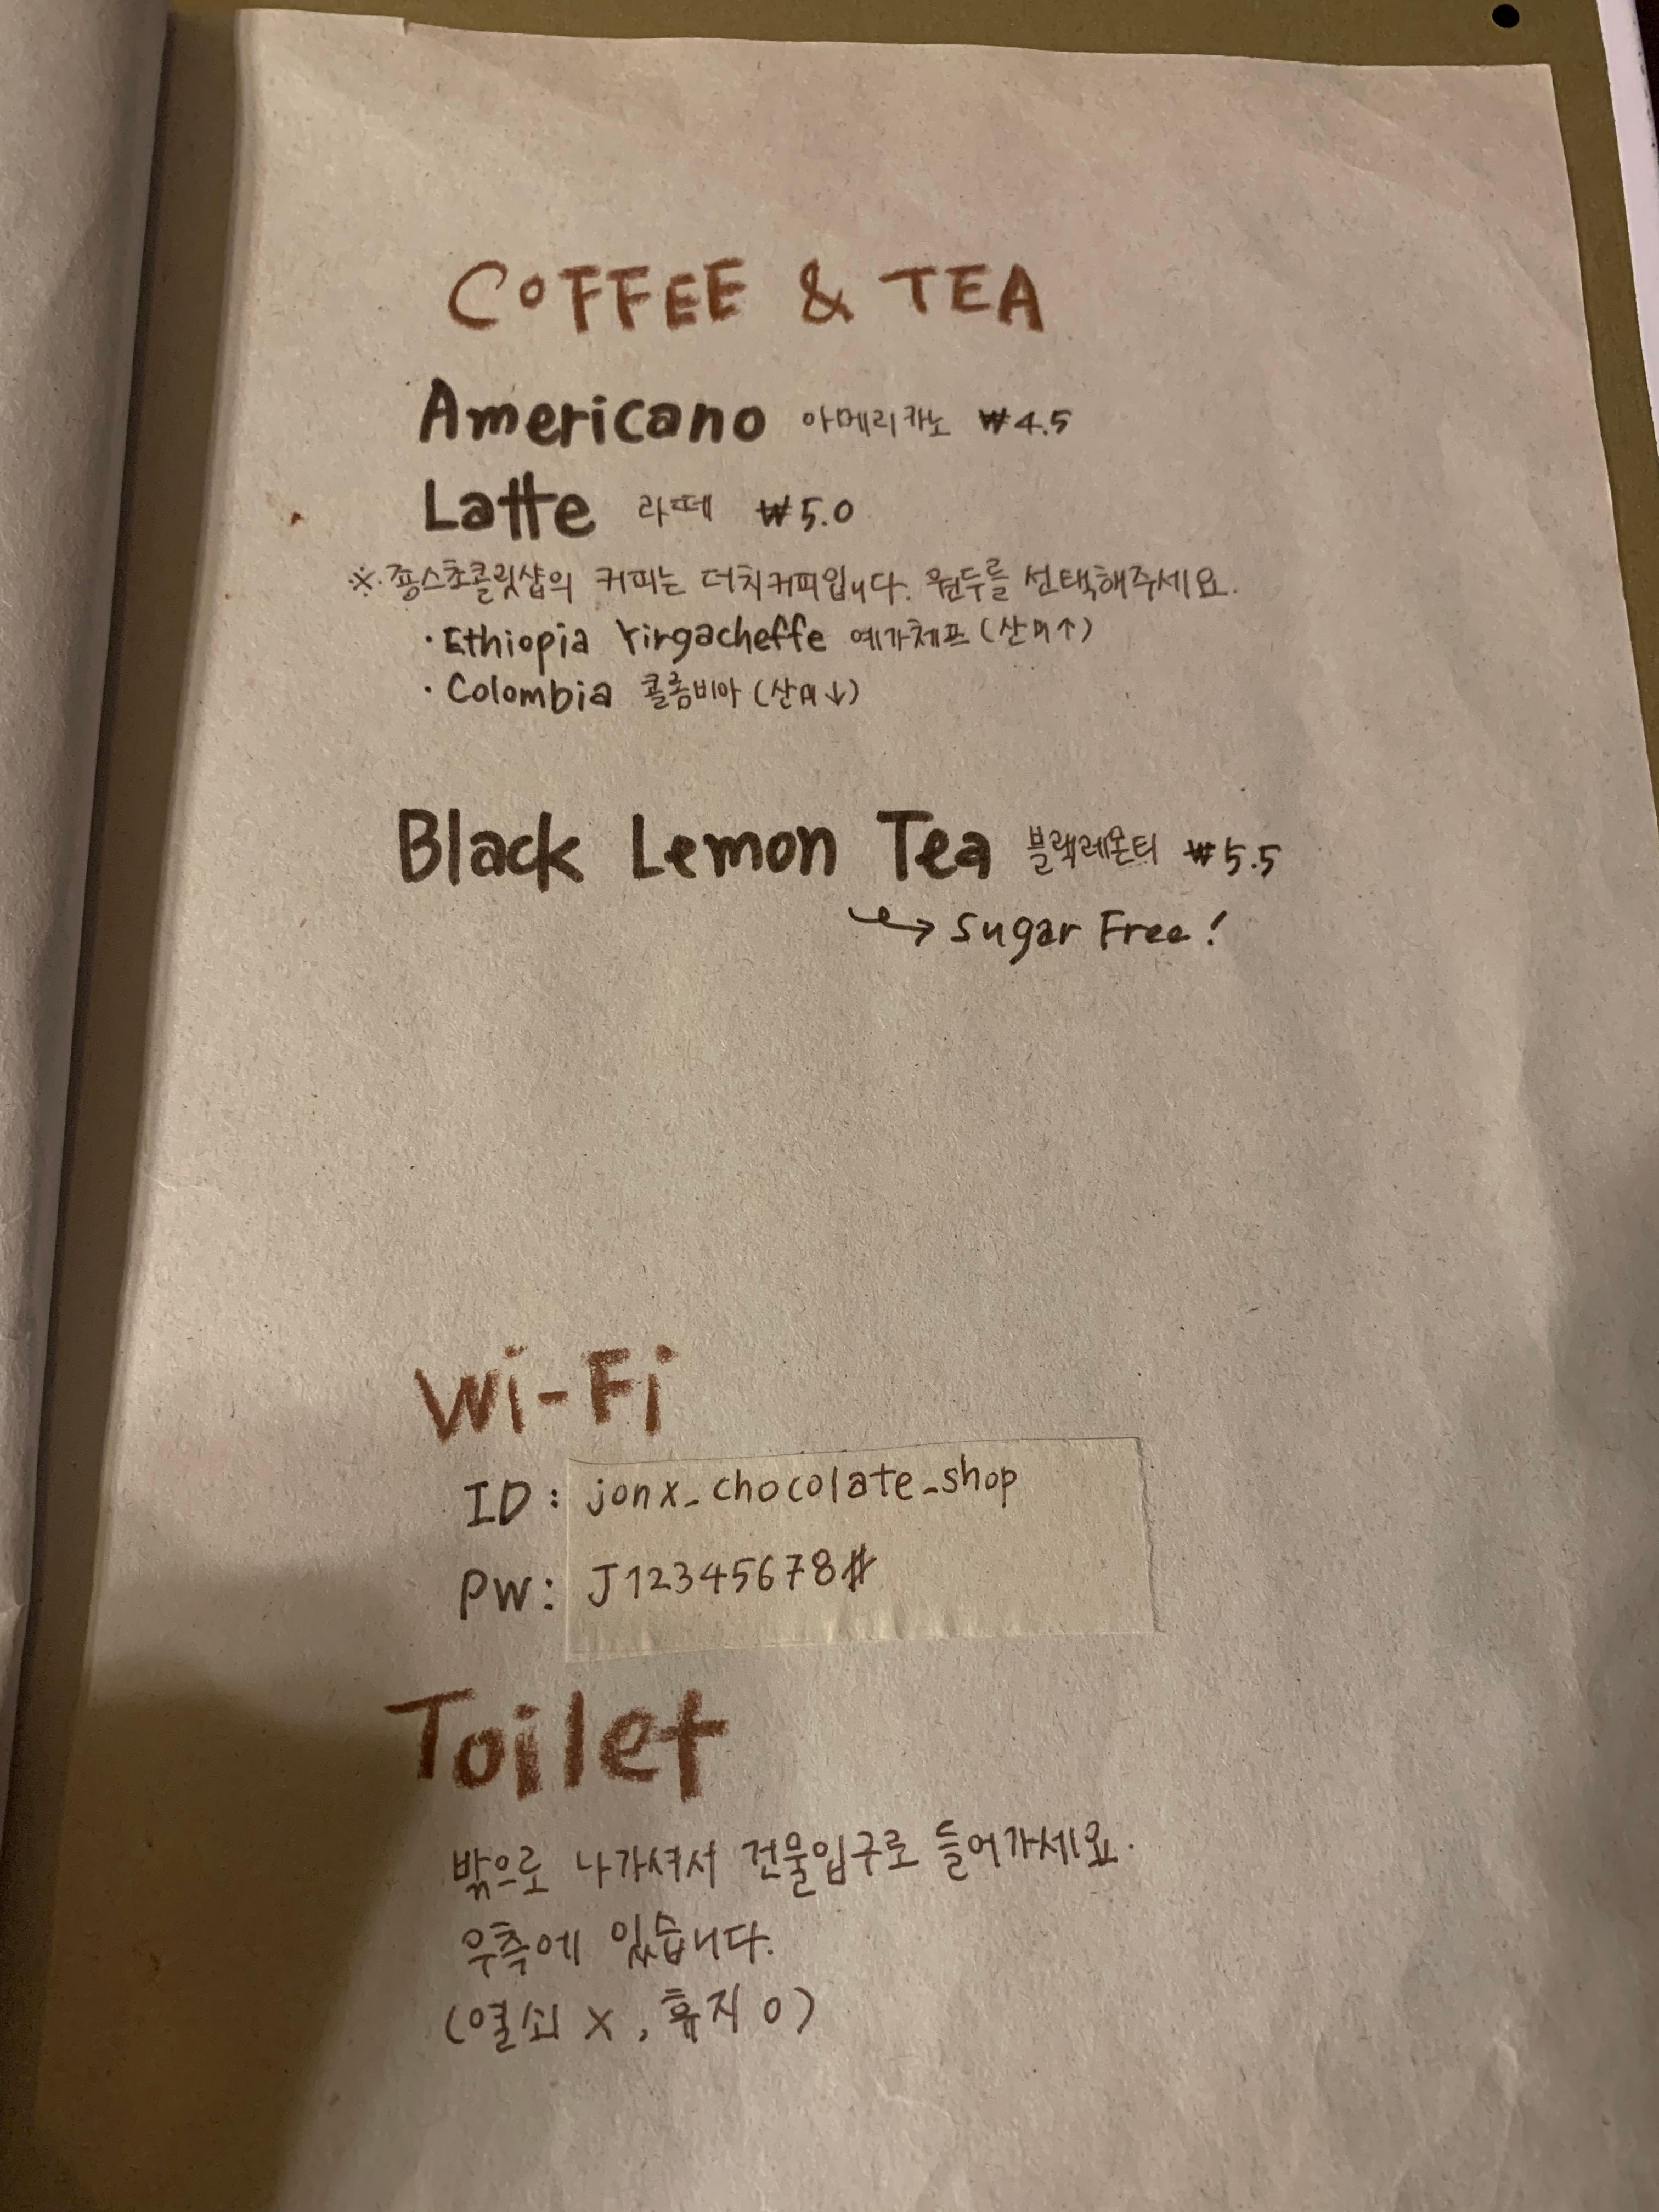 COFFEE & TEA
Americano 아메리카노 ₩4.5
Latte 라떼 ₩5.0
※. 죵스초콜릿샵의 커피는 더치커피입니다. 원두를 선택해주세요.
· Ethiopia Yirgacheffe 예가체프 (산미↑)
· Colombia 콜롬비아 (산미↓)
Black Lemon Tea 블랙레몬티 ₩5.5
↪ Sugar Free!
Wi-Fi
ID: jonx_chocolate_shop
PW: J12345678#
Toilet
밖으로 나가셔서 건물입구로 들어가세요.
우측에 있습니다.
(열쇠 X, 휴지 O)